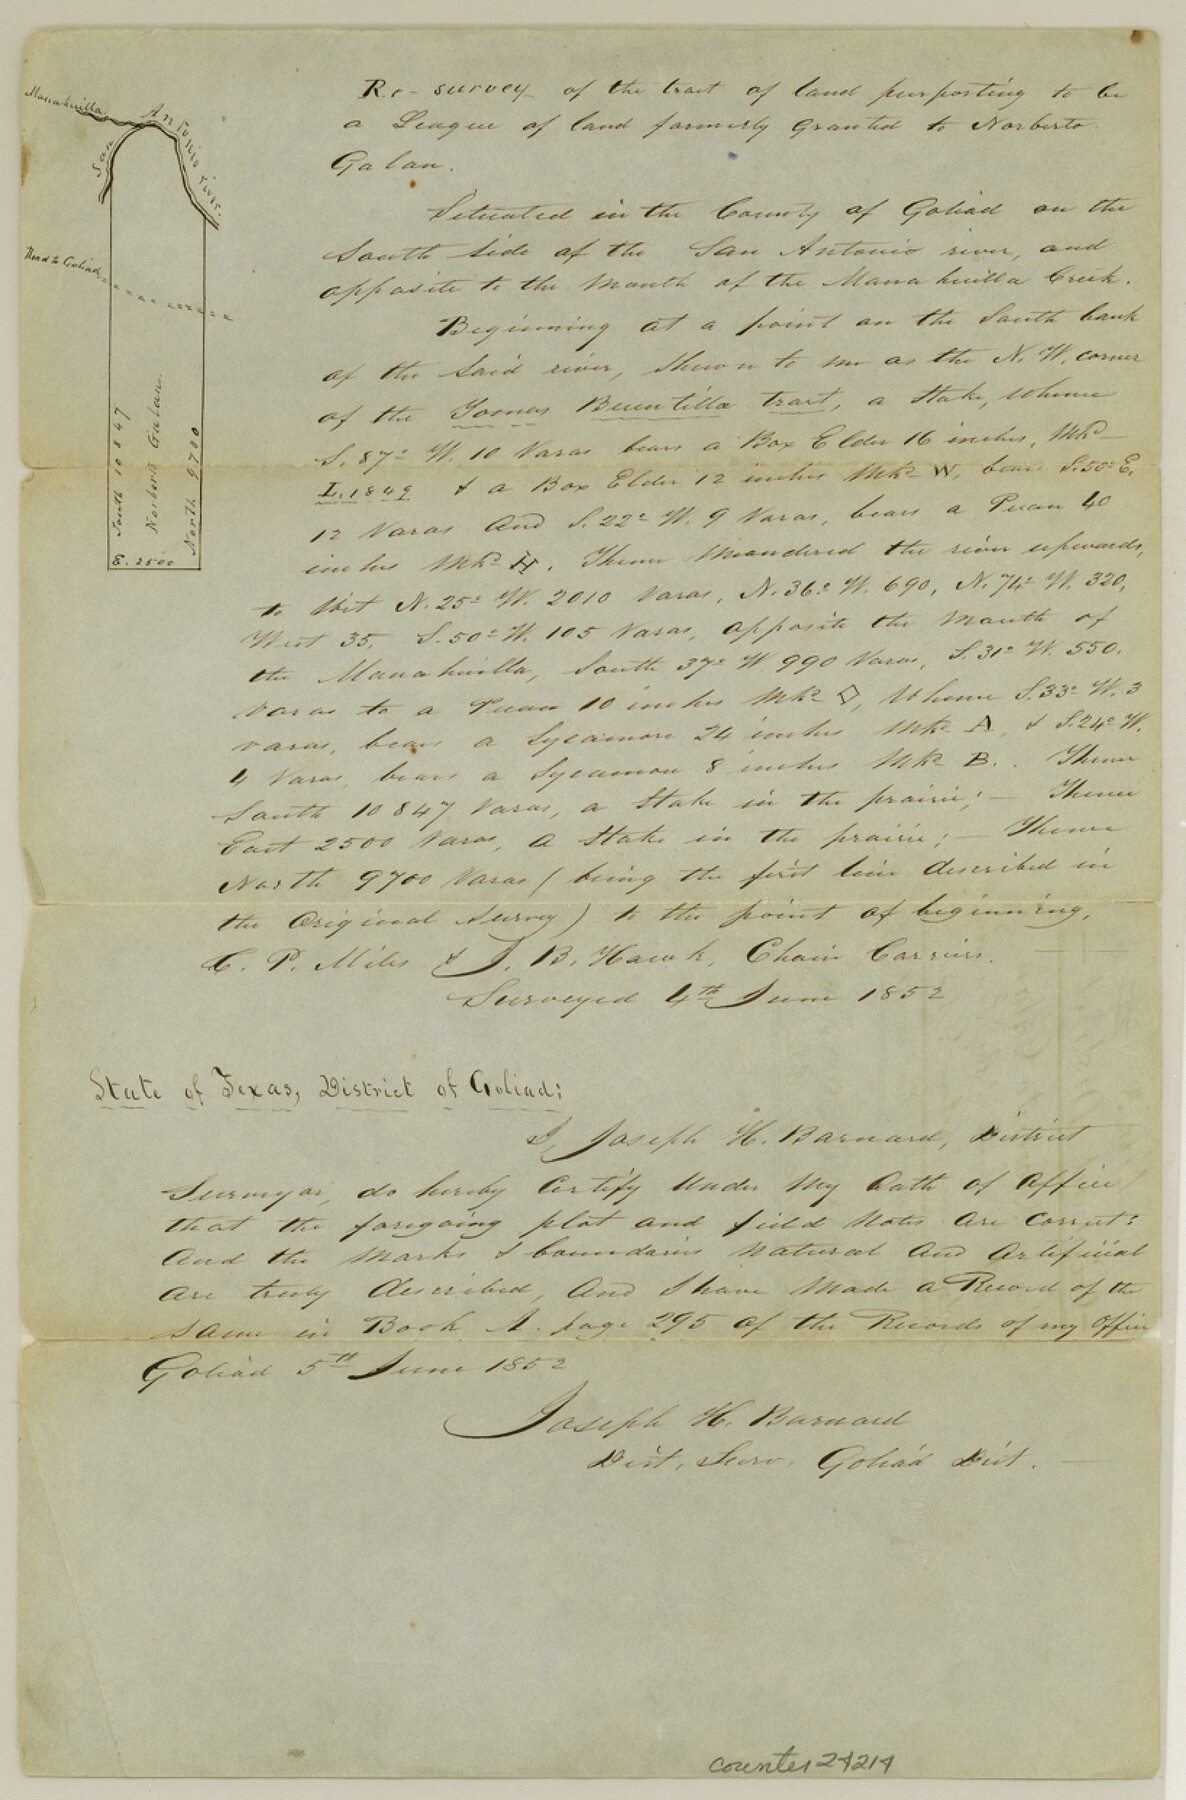 Manahuilla
San Antonio river.
Road to Goliad
South 10847
Norberto Galan.
North 9700
E. 2500
Re-survey of the tract of land purporting to be
a League of land formerly granted to Norberto
Galan.
Situated in the County of Goliad on the
South side of the San Antonio river, and
opposite to the Mouth of the Manahuilla Creek.
Beginning at a point on the South bank
of the said river, shewn to me as the N. W. corner
of the Tomas Buentilla tract, a Stake, whence
S. 87° W. 10 Varas bears a Box Elder 16 inches, Mkd
L. 1849 & a Box Elder 12 inches Mkd W, bears S. 50° E.
12 Varas and S. 22° W. 9 Varas, bears a Pecan 40
inches Mkd H. Thence Meandered the river upwards,
to Wit N. 25° W. 2010 Varas, N. 36° W. 690, N. 74° W. 320,
West 35, S. 50° W. 105 Varas, opposite the Mouth of
the Manahuilla, South 37° W. 990 Varas, S. 31° W. 550.
Varas to a Pecan 10 inches Mkd ◇, Whence S. 33° W. 3
varas, bears a Sycamore 24 inches Mkd A, & S. 24° W.
4 Varas, bears a Sycamore 8 inches Mkd B. Thence
South 10847 Varas, a Stake in the prairie; — Thence
East 2500 Varas, a Stake in the prairie; — Thence
North 9700 Varas (being the first line described in
the Original Survey) to the point of beginning.
C. P. Miles & J. B. Hawk, Chain Carriers.
Surveyed 4th June 1852
State of Texas, District of Goliad:
I, Joseph H. Barnard, District
Surveyor, do hereby Certify Under My Oath of Office
that the foregoing plot and field Notes are Correct:
and the Marks & boundaries Natural and Artificial
are truly described, and I have Made a Record of the
same in Book A. page 295 of the Records of my Office
Goliad 5th June 1852
Joseph H. Barnard
Dist. Surv. Goliad Dist.
counter 24214